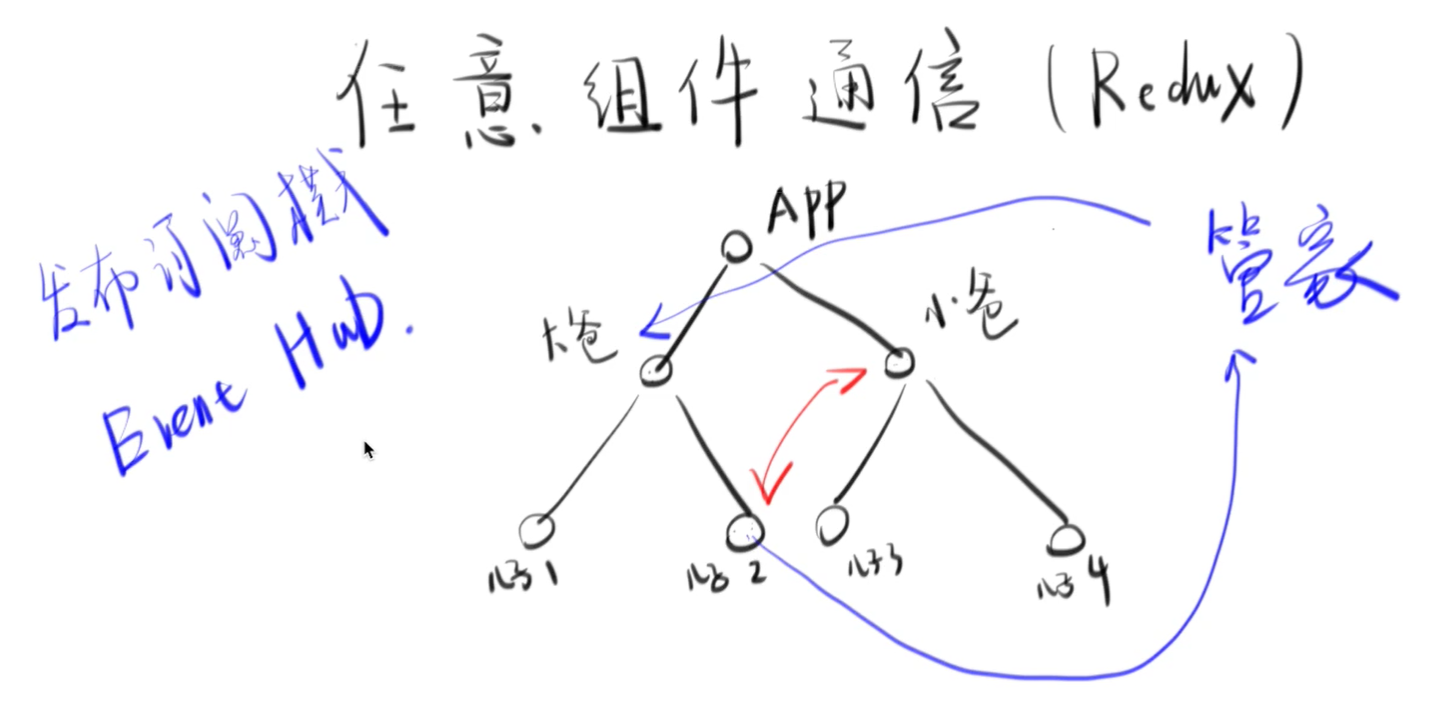 任意组件通信（Redux）
发布订阅模式
Event Hub.
APP
管家
大爸
小爸
儿子1
儿子2
儿子3
儿子4